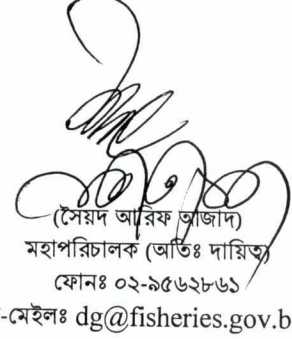 (সৈয়দ আরিফ আজাদ)
মহাপরিচালক (অতিঃ দায়িত্ব)
ফোনঃ ০২-৯৫৬২৮৬১
-মেইলঃ dg@fisheries.gov.b